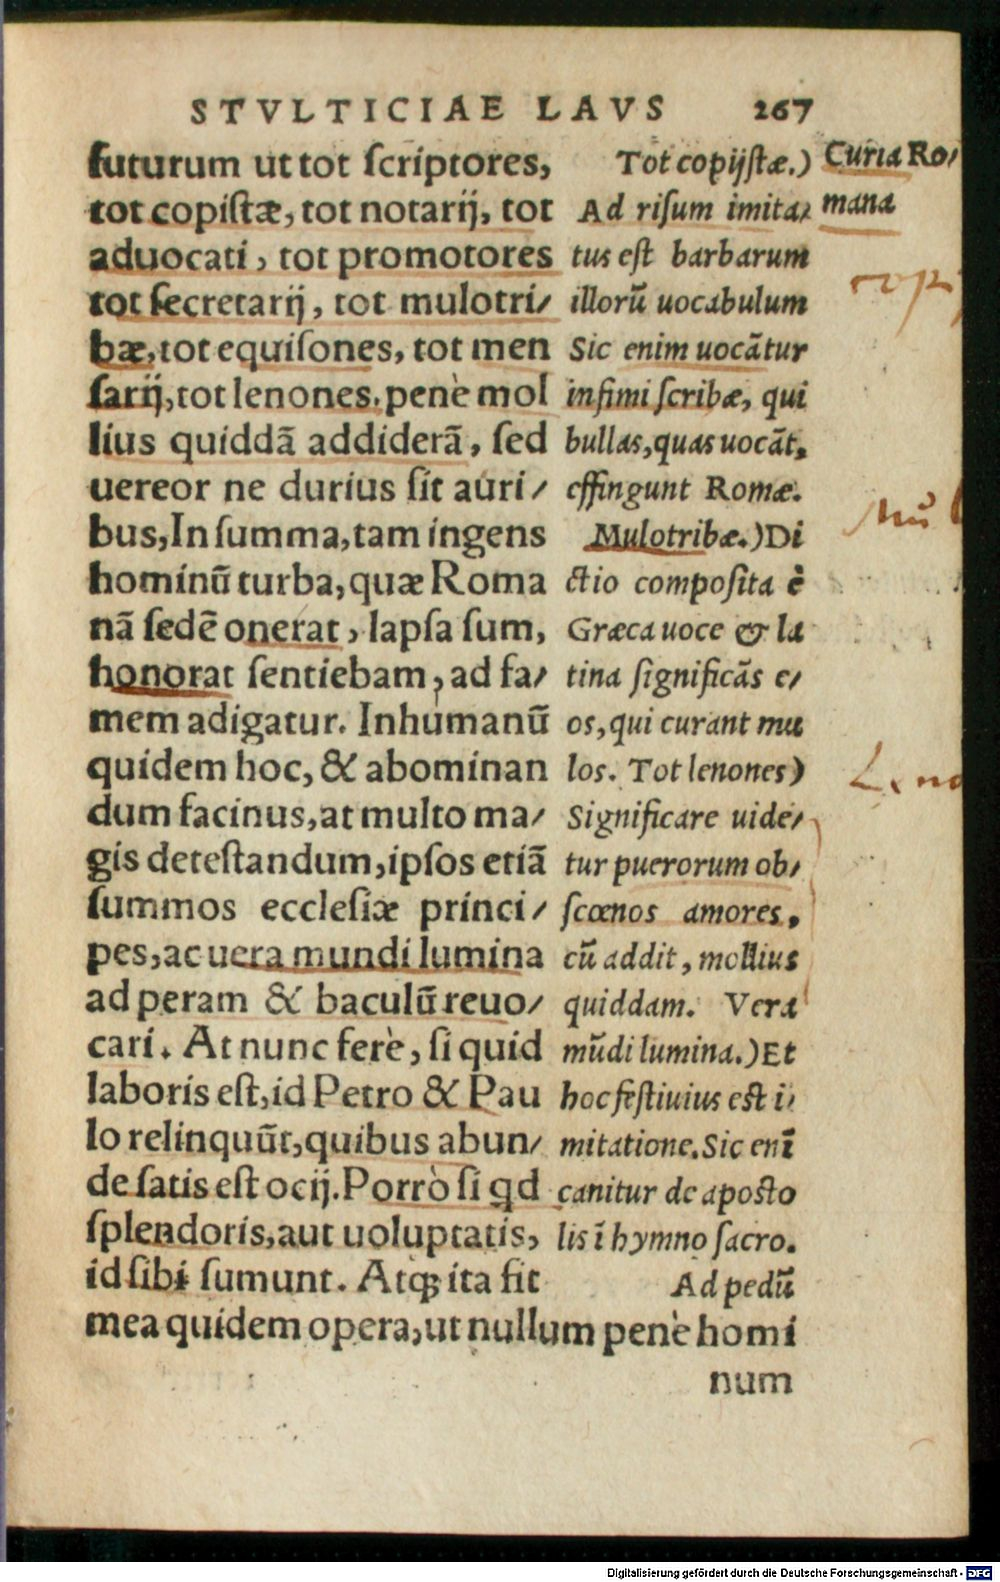 STVLTICIAE LAVS 267
futurum ut tot ſcriptores,
tot copiſtæ, tot notarij, tot
aduocati, tot promotores
tot ſecretarij, tot mulotri/
bæ, tot equiſones, tot men
ſarij, tot lenones. penè mol
lius quiddã addiderã, ſed
uereor ne durius ſit auri/
bus, In ſumma, tam ingens
hominũ turba, quæ Roma
nã ſedẽ onerat, lapſa ſum,
honorat ſentiebam, ad fa/
mem adigatur. Inhumanũ
quidem hoc, & abominan
dum facinus, at multo ma/
gis deteſtandum, ipſos etiã
ſummos eccleſiæ princi/
pes, ac uera mundi lumina
ad peram & baculũ reuo/
cari. At nunc ferè, ſi quid
laboris eſt, id Petro & Pau
lo relinquũt, quibus abun/
de ſatis eſt ocij. Porrò ſi qd
ſplendoris, aut uoluptatis,
id ſibi ſumunt. Atqꝫ ita fit
mea quidem opera, ut nullum penè homi
num
Tot copijſtæ.)
Ad riſum imita/
tus eſt barbarum
illorũ uocabulum
Sic enim uocãtur
infimi ſcribæ, qui
bullas, quas uocãt,
effingunt Romæ.
Mulotribæ.) Di
ctio compoſita è
Græca uoce & la
tina ſignificãs e/
os, qui curant mu
los. Tot lenones)
Significare uide/
tur puerorum ob/
ſcœnos amores,
cũ addit, mollius
quiddam. Vera
mũdi lumina.) Et
hoc feſtiuius eſt i/
mitatione. Sic enĩ
canitur de apoſto
lis ĩ hymno ſacro.
Ad pedũ
Curia Ro/
mana
Digitalisierung gefördert durch die Deutsche Forschungsgemeinschaft - DFG